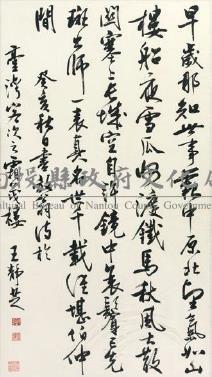 早歲那知世事艱中原北望氣如山
樓船夜雪瓜洲渡鐵馬秋風大散
關塞上長城空自許鏡中衰鬢已先
斑出師一表真名世千載誰堪伯仲
間
癸亥秋日書放翁詩於
臺灣客次之霜茂樓 王靜芝
投縣政府文化局
Bureau of Nantou County Government